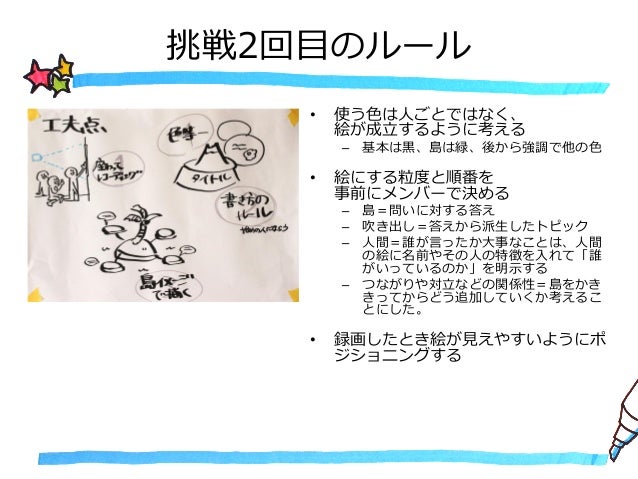 挑戦2回目のルール
工夫点、
色統一
タイトル
書き方の
ルール
島イメージ
で描く
• 使う色は人ごとではなく、
絵が成立するように考える
– 基本は黒、島は緑、後から強調で他の色
• 絵にする粒度と順番を
事前にメンバーで決める
– 島＝問いに対する答え
– 吹き出し＝答えから派生したトピック
– 人間＝誰が言ったか大事なことは、人間
の絵に名前やその人の特徴を入れて「誰
がいっているのか」を明示する
– つながりや対立などの関係性＝島をかき
きってからどう追加していくか考えるこ
とにした。
• 録画したとき絵が見えやすいようにポ
ジショニングする